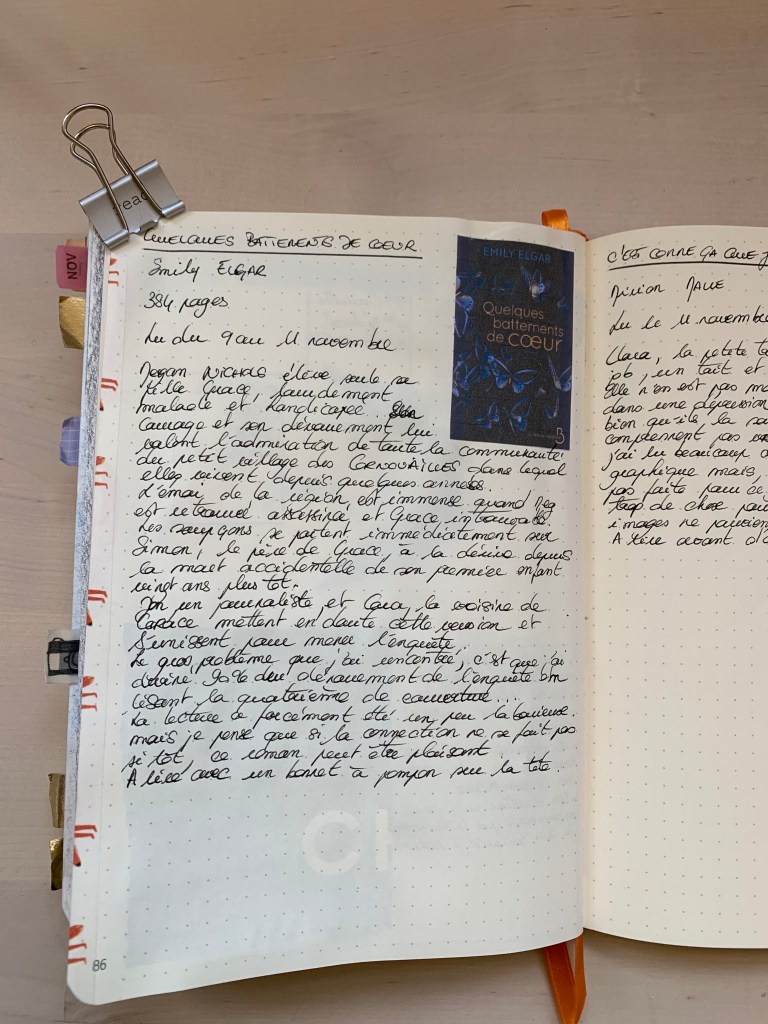 read
NOV
QUELQUES BATTEMENTS DE COEUR
Emily ELGAR
384 pages
Lu du 9 au 11 novembre
EMILY ELGAR
Quelques
battements
de cœur
Megan NICHOLS élève seule sa
fille Grace, lourdement
malade et handicapée. Son
courage et son dévouement lui
valent l'admiration de toute la communauté
du petit village des CORNOUAILLES dans lequel
elles vivent, depuis quelques années.
L'émoi de la région est immense quand Meg
est retrouvée assassinée, et Grace introuvable.
Les soupçons se portent immédiatement sur
Simon, le père de Grace, à la dérive depuis
la mort accidentelle de son premier enfant
vingt ans plus tôt.
Jon un journaliste et Cara, la voisine de
Grace mettent en doute cette version et
s'unissent pour mener l'enquête.
Le gros problème que j'ai rencontré, c'est que j'ai
deviné 90% du dénouement de l'enquête en
lisant la quatrième de couverture...
La lecture a forcément été un peu laborieuse.
mais je pense que si la connection ne se fait pas
si tôt, ce roman peut être plaisant.
A lire avec un bonnet à pompon sur la tête.
86
C'EST COMME ÇA QUE J
Mirion MALLE
Lu le 11 novembre
Clara, la petite
job, un toit et
Elle n'en est pas
dans une dépression
bien qu'ils, la
comprennent pas
j'ai lu beaucoup
graphique mais,
pas faite pour ce
trop de chose pour
images ne
A lire avant d'